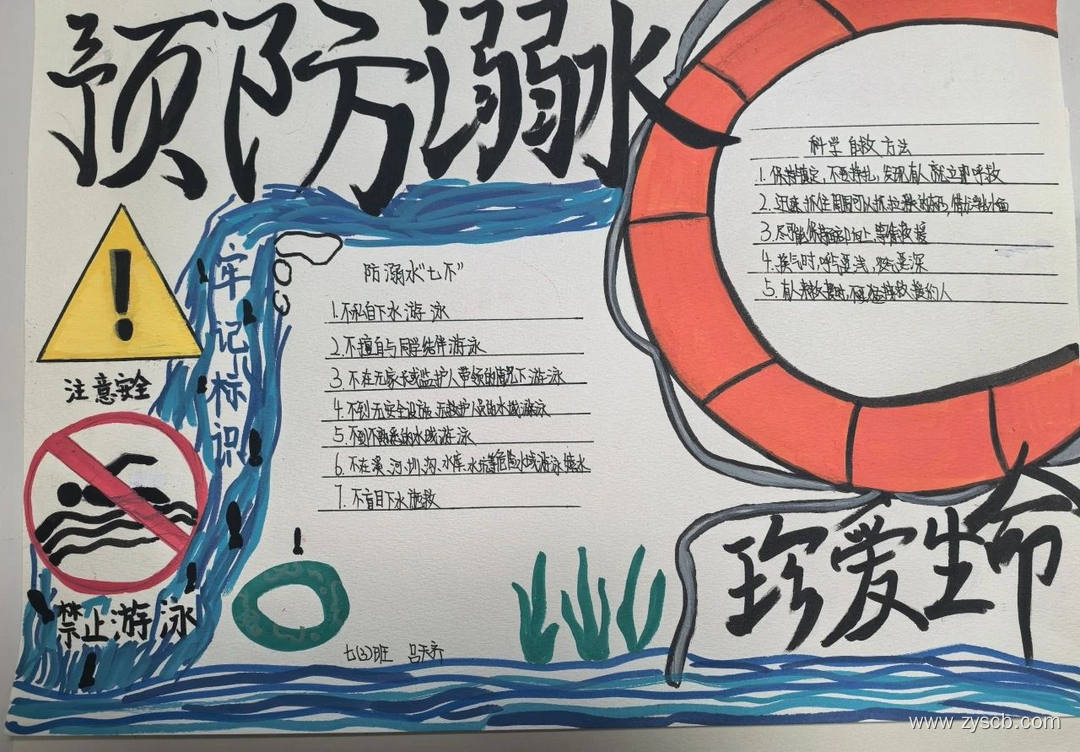 预防溺水
注意安全
禁止游泳
牢记标识
防溺水"七不"
1.不私自下水游泳
2.不擅自与同学结伴游泳
3.不在无家长或监护人带领的情况下游泳
4.不到无安全设施、无救护人员的水域游泳
5.不到不熟悉的水域游泳
6.不在溪、河、圳、沟、水库、水坑等危险水域游泳
7.不盲目下水施救
七(3)班
科学自救方法
1.保持镇定,不要挣扎,发现有人就立即呼救
2.迅速抓住周围可以抓
3.尽可能保持面部向上,等待救援
4.换气时,呼气要浅,吸气要深
5.有人来救援时,不
珍爱生命
www.zyscb.com